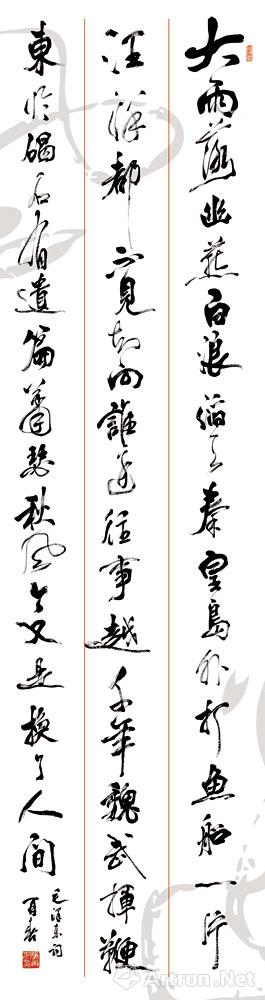 大雨落幽燕白浪滔天秦皇島外打魚船一片
汪洋都不見知向誰邊往事越千年魏武揮鞭
東臨碣石有遺篇蕭瑟秋風今又是換了人間
毛澤東詞
Artron.Net